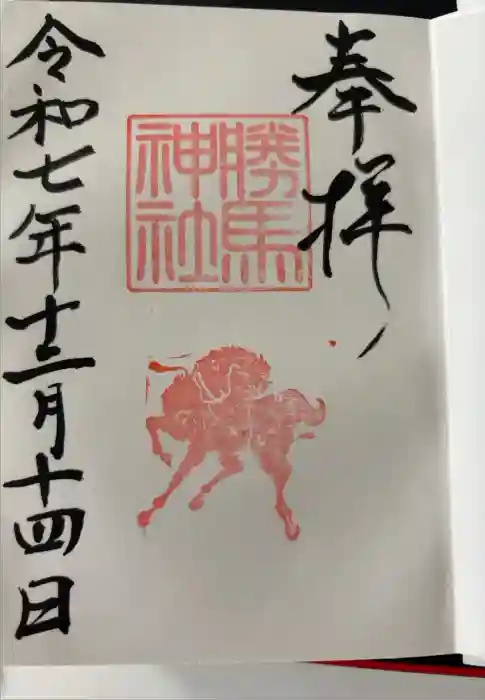 奉拝
勝馬
神社
令和七年十二月十四日